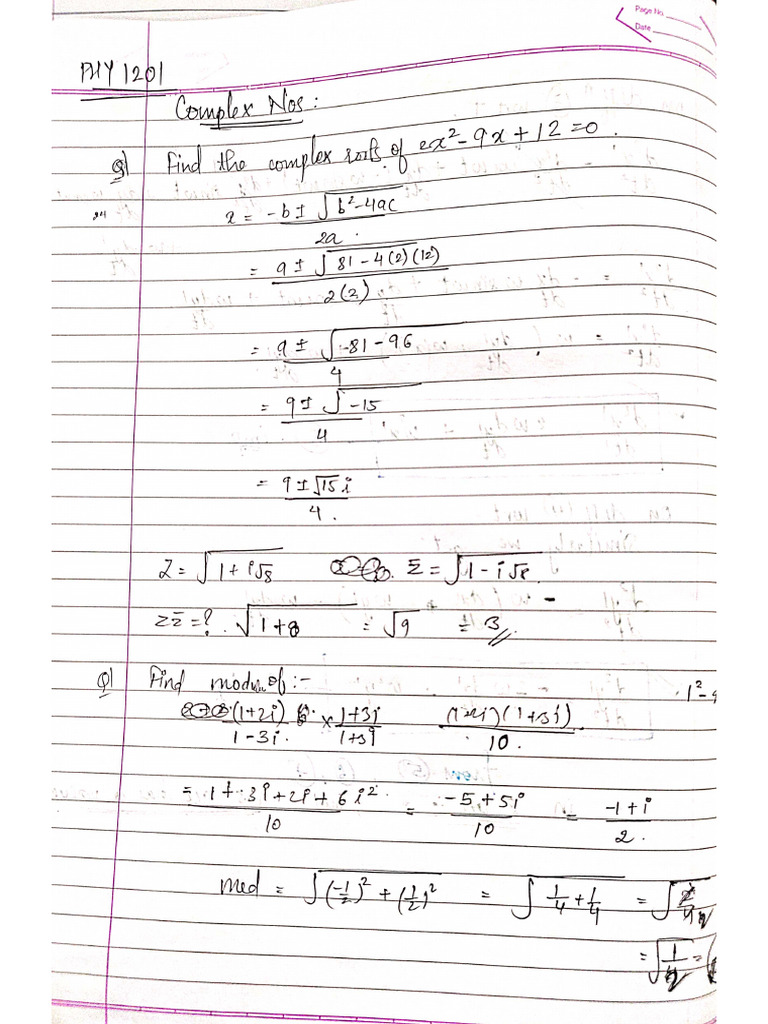 Page No.
Date
PHY 1201
Complex Nos:
Q1 Find the complex roots of 2x² - 9x + 12 = 0.
x = -b ± √(b² - 4ac) / 2a.
= 9 ± √(81 - 4(2)(12)) / 2(2)
= 9 ± √(-81 - 96) / 4
= 9 ± √(-15) / 4
= 9 ± √15 i / 4.
Z = √(1 + i√8) Z̄ = √(1 - i√8).
ZZ̄ = ? √(1 + 8) = √9 = 3
Q1 Find modu of :-
(1+2i) / 1-3i. × 1+3i / 1+3i (1+2i)(1+3i) / 10. 1² -
= 1 + 3i + 2i + 6i² / 10 = -5 + 5i / 10 = -1 + i / 2.
mod = √((-1/2)² + (1/2)²) = √(1/4 + 1/4) = √(2/4)
= √(1/2) =